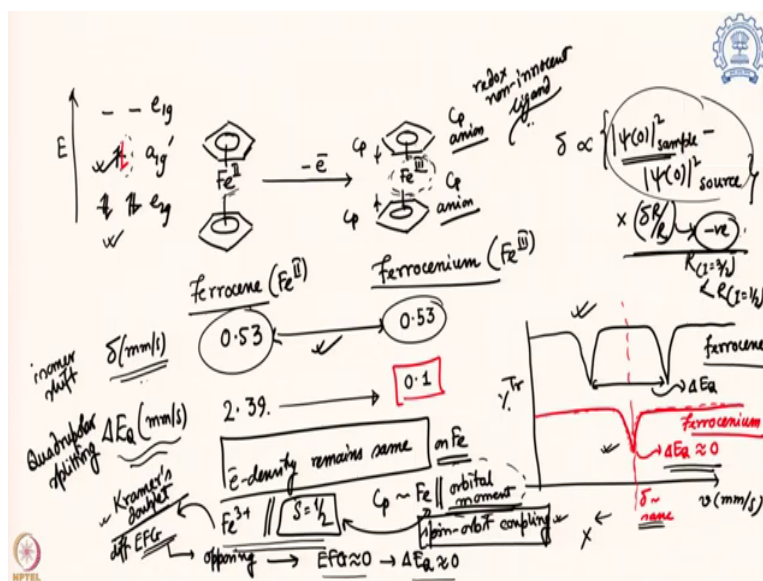 E
e1g
a1g'
e2g
FeII
-ē
Cp
Cp
FeIII
Cp anion
Cp anion
redox non-innocent ligand
δ ∝ { |Ψ(0)|² sample -
|Ψ(0)|² source }
x (δR/R) → -ve
R(I=3/2)
< R(I=1/2)
Ferrocene (FeII)
Ferrocenium (FeIII)
isomer shift
δ(mm/s)
0.53
0.53
Quadrupolar splitting
ΔEQ (mm/s)
2.39.
0.1
ē-density remains same on Fe
Kramer's doublet
diff EFG
Fe3+ || S=1/2
Cp ~ Fe || orbital moment
spin-orbit coupling
opposing → EFG≈0 → ΔEQ≈0
% Tr
Ferrocene
ΔEQ
Ferrocenium
ΔEQ≈0
v(mm/s)
δ~ same
x
NPTEL